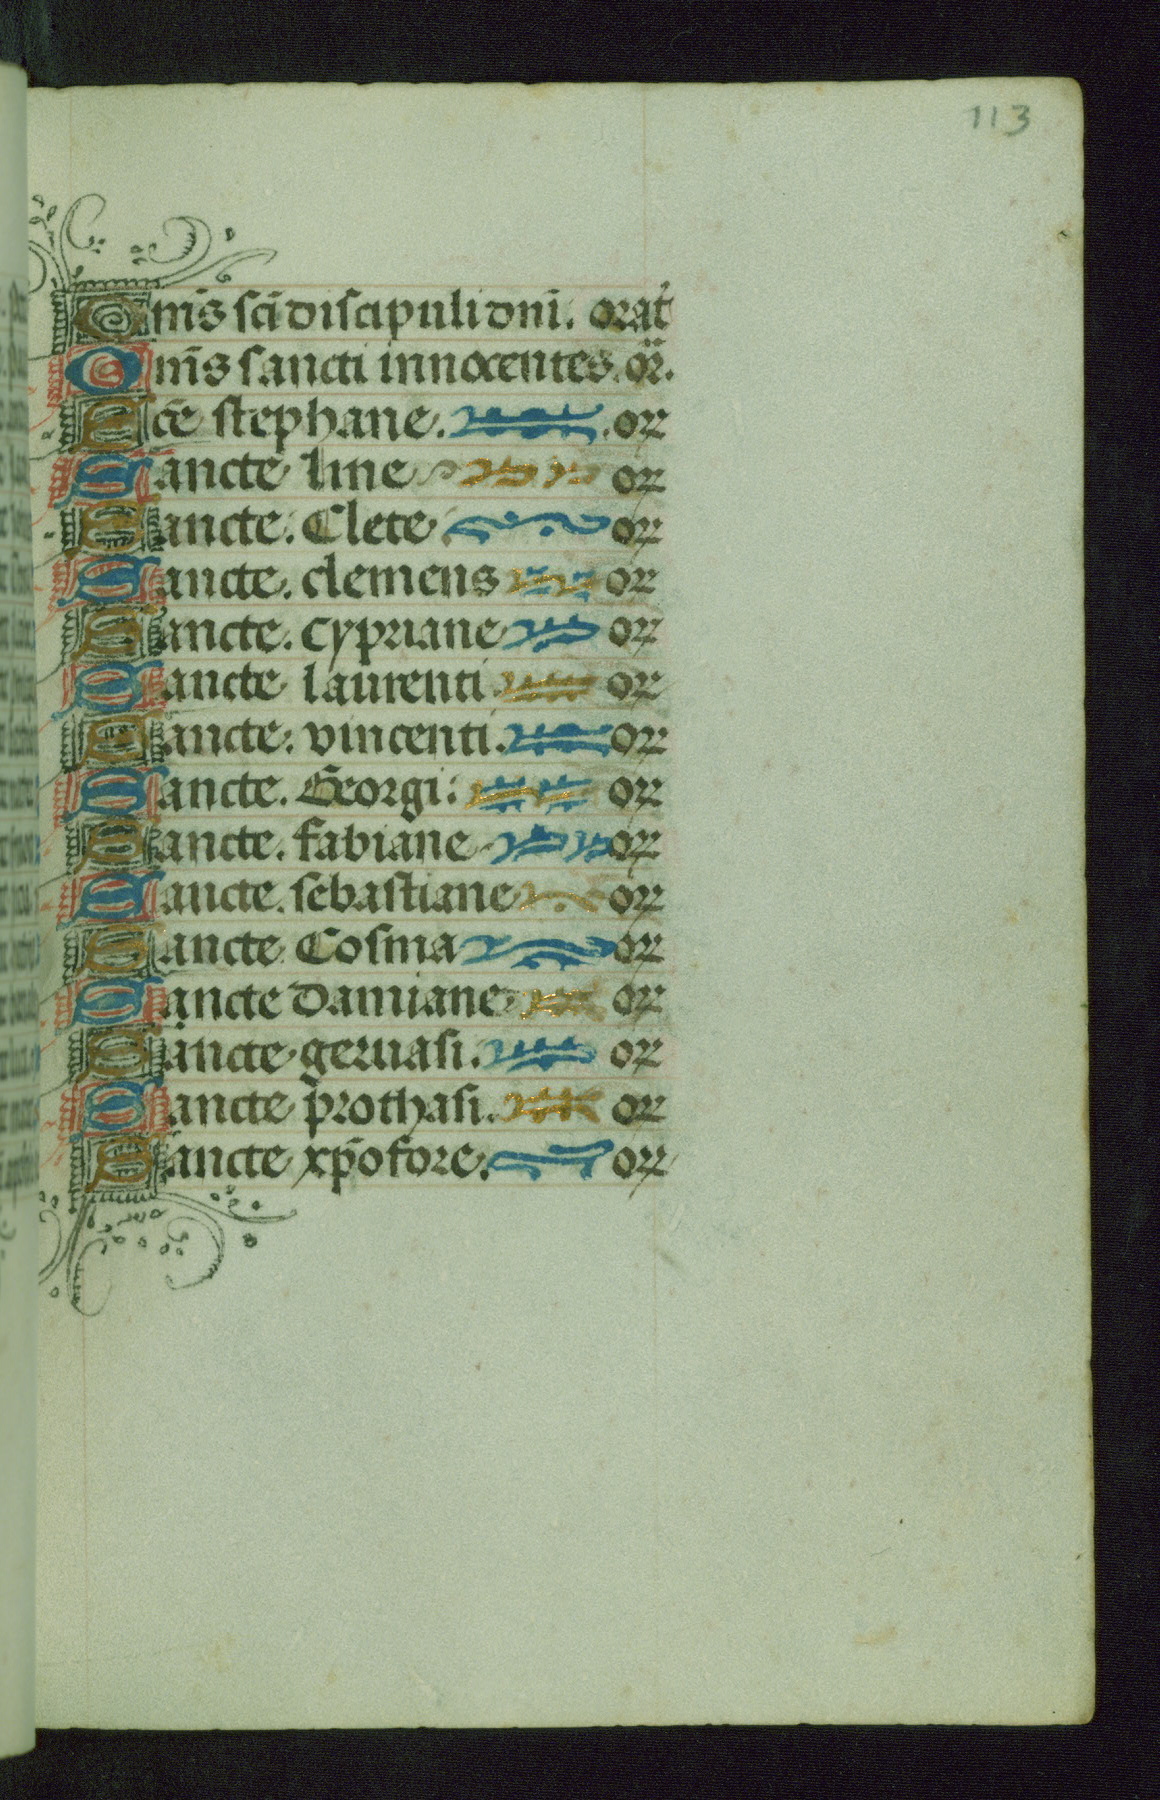 113
Om̄s sc̄i discipuli dn̄i. orat̄
Om̄s sancti innocentes. or̄.
Sc̄e stephane. or
Sancte line or
Sancte. Clete. or
Sancte. clemens or
Sancte. cypriane or
Sancte laurenti. or
Sancte. vincenti. or
Sancte. Georgi. or
Sancte. fabiane or
Sancte. sebastiane or
Sancte Cosma or
Sancte Damiane or
Sancte geruasi. or
Sancte prothasi. or
Sancte xp̄ofore. or